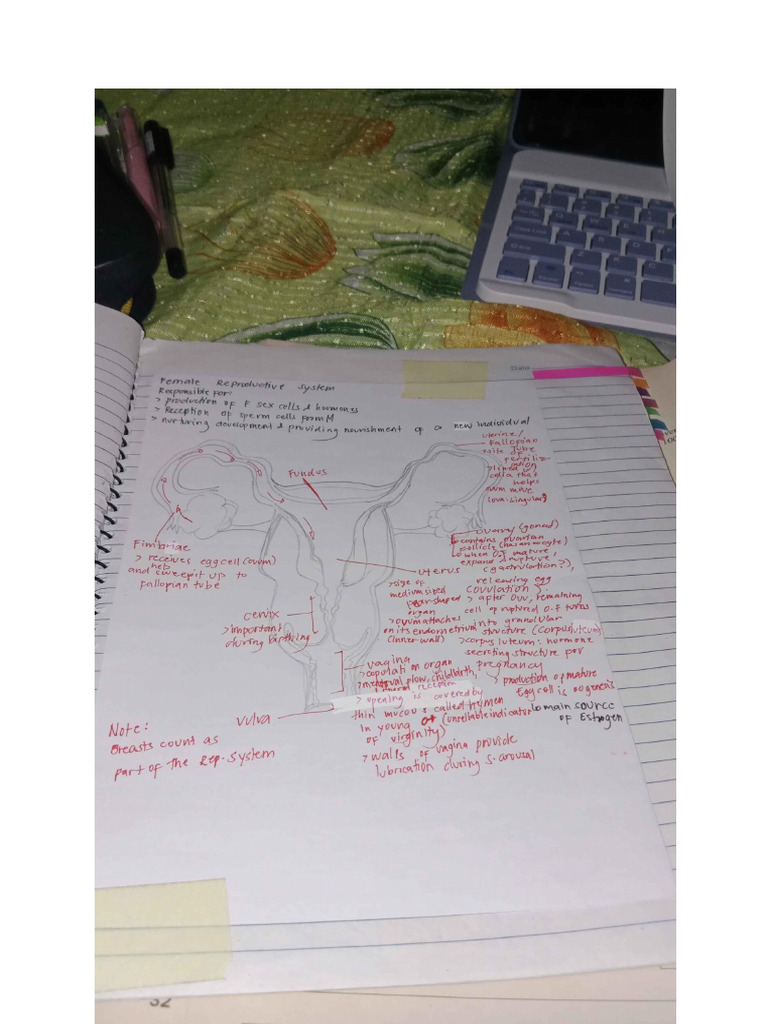 Date
Female Reproductive System
Responsible for:
> production of F sex cells & hormones
> Reception of sperm cells from M
> nurturing development & providing nourishment of a new individual
uterine/
Fallopian
Tube
>site of
fertiliz-
ation
>lined w/
cilia that
helps
ovum move
(ova:singular)
Fundus
Fimbriae
> receives egg cell (ovum)
and help sweep it up to
fallopian tube
ovary (gonad)
contains ovarian
follicle (has an oocyte)
when O.F mature,
expand & rupture,
releasing egg
(ovulation)
> after ovu, remaining
cell of ruptured O.F turns
into granular
structure (corpus luteum)
>corpus luteum: hormone
secreting structure for
pregnancy
> production of mature
Egg cell is oogenesis
main source
of Estrogen
uterus
>size of
medium sized
pear-shaped
organ
>ovum attaches
on its endometrium
(inner-wall)
cervix
>important
during birthing
vagina
>copulation organ
>menstrual flow, childbirth,
> opening is covered by
thin mucous called Hymen
in young (unreliable indicator
of virginity)
> walls of vagina provide
lubrication during s. arousal
vulva
Note:
Breasts count as
part of the Rep. System